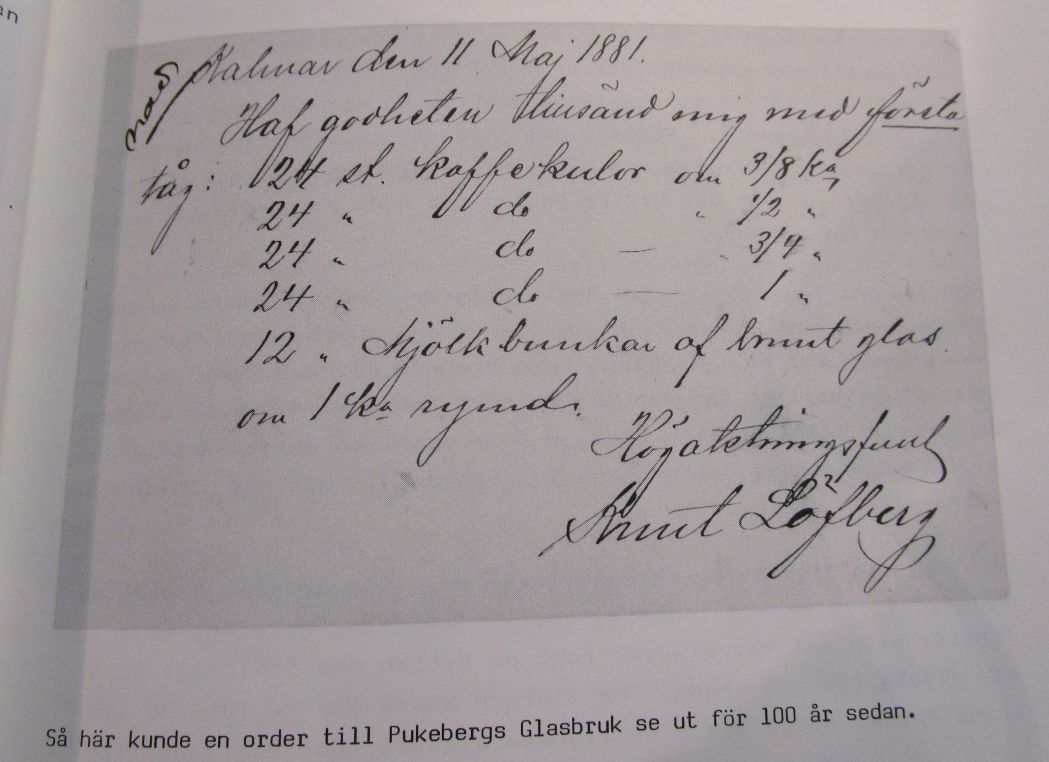 an
Kalmar den 11 Maj 1881.
Haf godheten tillsänd mig med första
tåg: 24 st. Kaffekulor om 3/8 Ka
24 " do " 1/2 "
24 " do — " 3/4 "
24 " do — 1 "
12 " Mjölkbunkar af brunt glas
om 1 Ka rymd.
Högaktningsfullt
Knut Löfberg
Så här kunde en order till Pukebergs Glasbruk se ut för 100 år sedan.